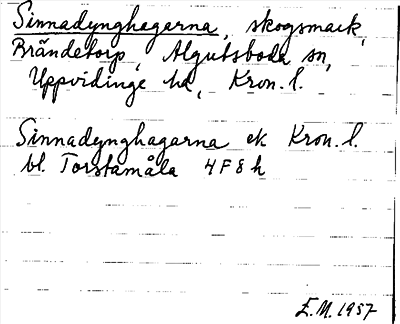 Sinnadynghagerna, skogsmark,
Brändetorp, Algutsboda sn,
Uppvidinge hd, Kron. l.
Sinnadynghagarna ek Kron. l.
bl. Torstamåla 4F8h
E.M. 1957